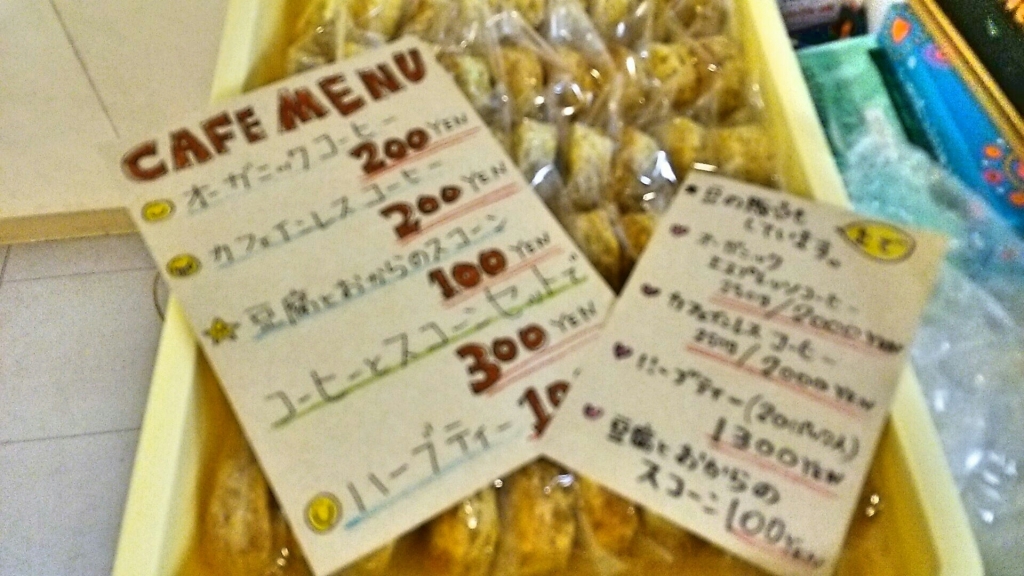 CAFE MENU
オーガニックコーヒー
200 YEN
カフェインレスコーヒー
200 YEN
豆腐とおからのスコーン
100 YEN
コーヒーとスコーンセットで
300 YEN
ハーブティー
豆の販売も
しています。
オーガニック
コーヒー
250g/2000YEN
カフェインレス コーヒー
250g/2000YEN
ハーブティー(20パック入)
1300YEN
豆腐とおからの
スコーン 100YEN